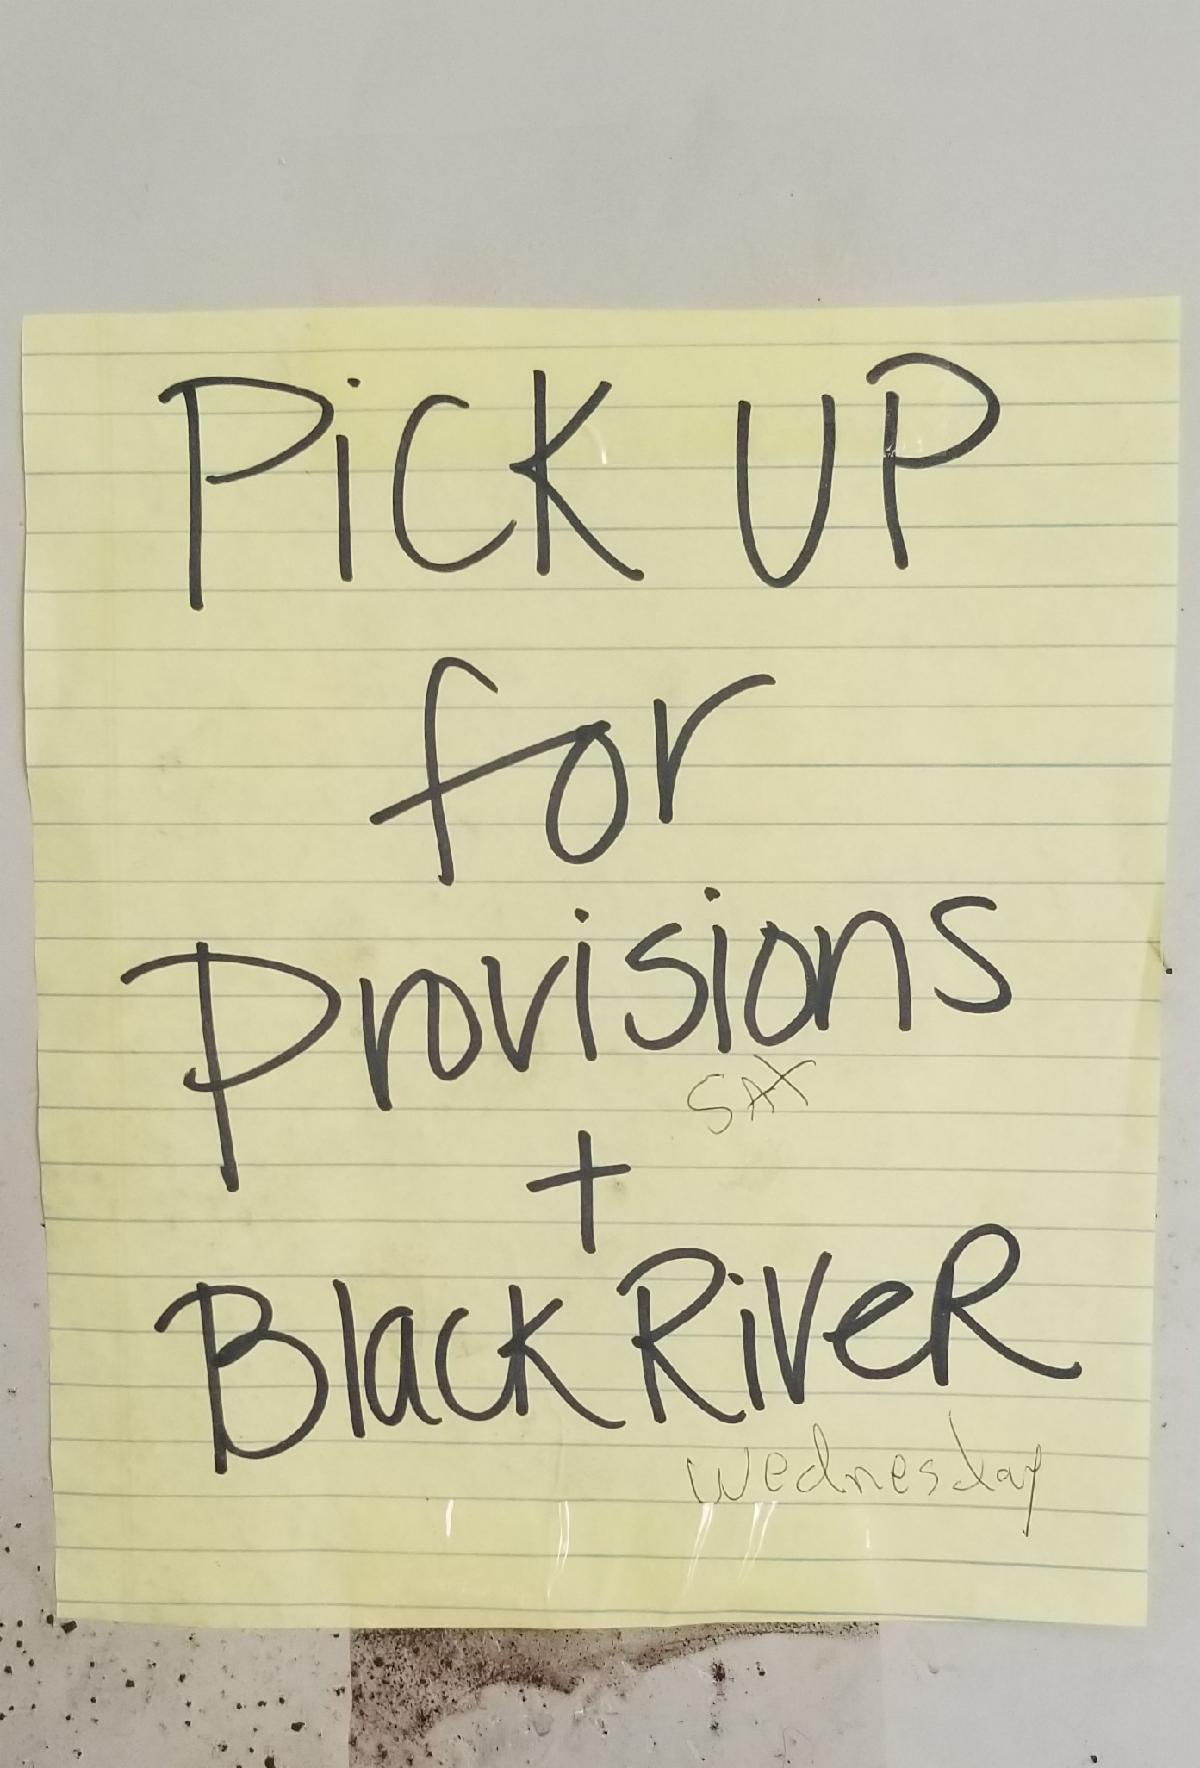 PiCK UP
for
Provisions
SAT
+
Black RiveR
Wednesday